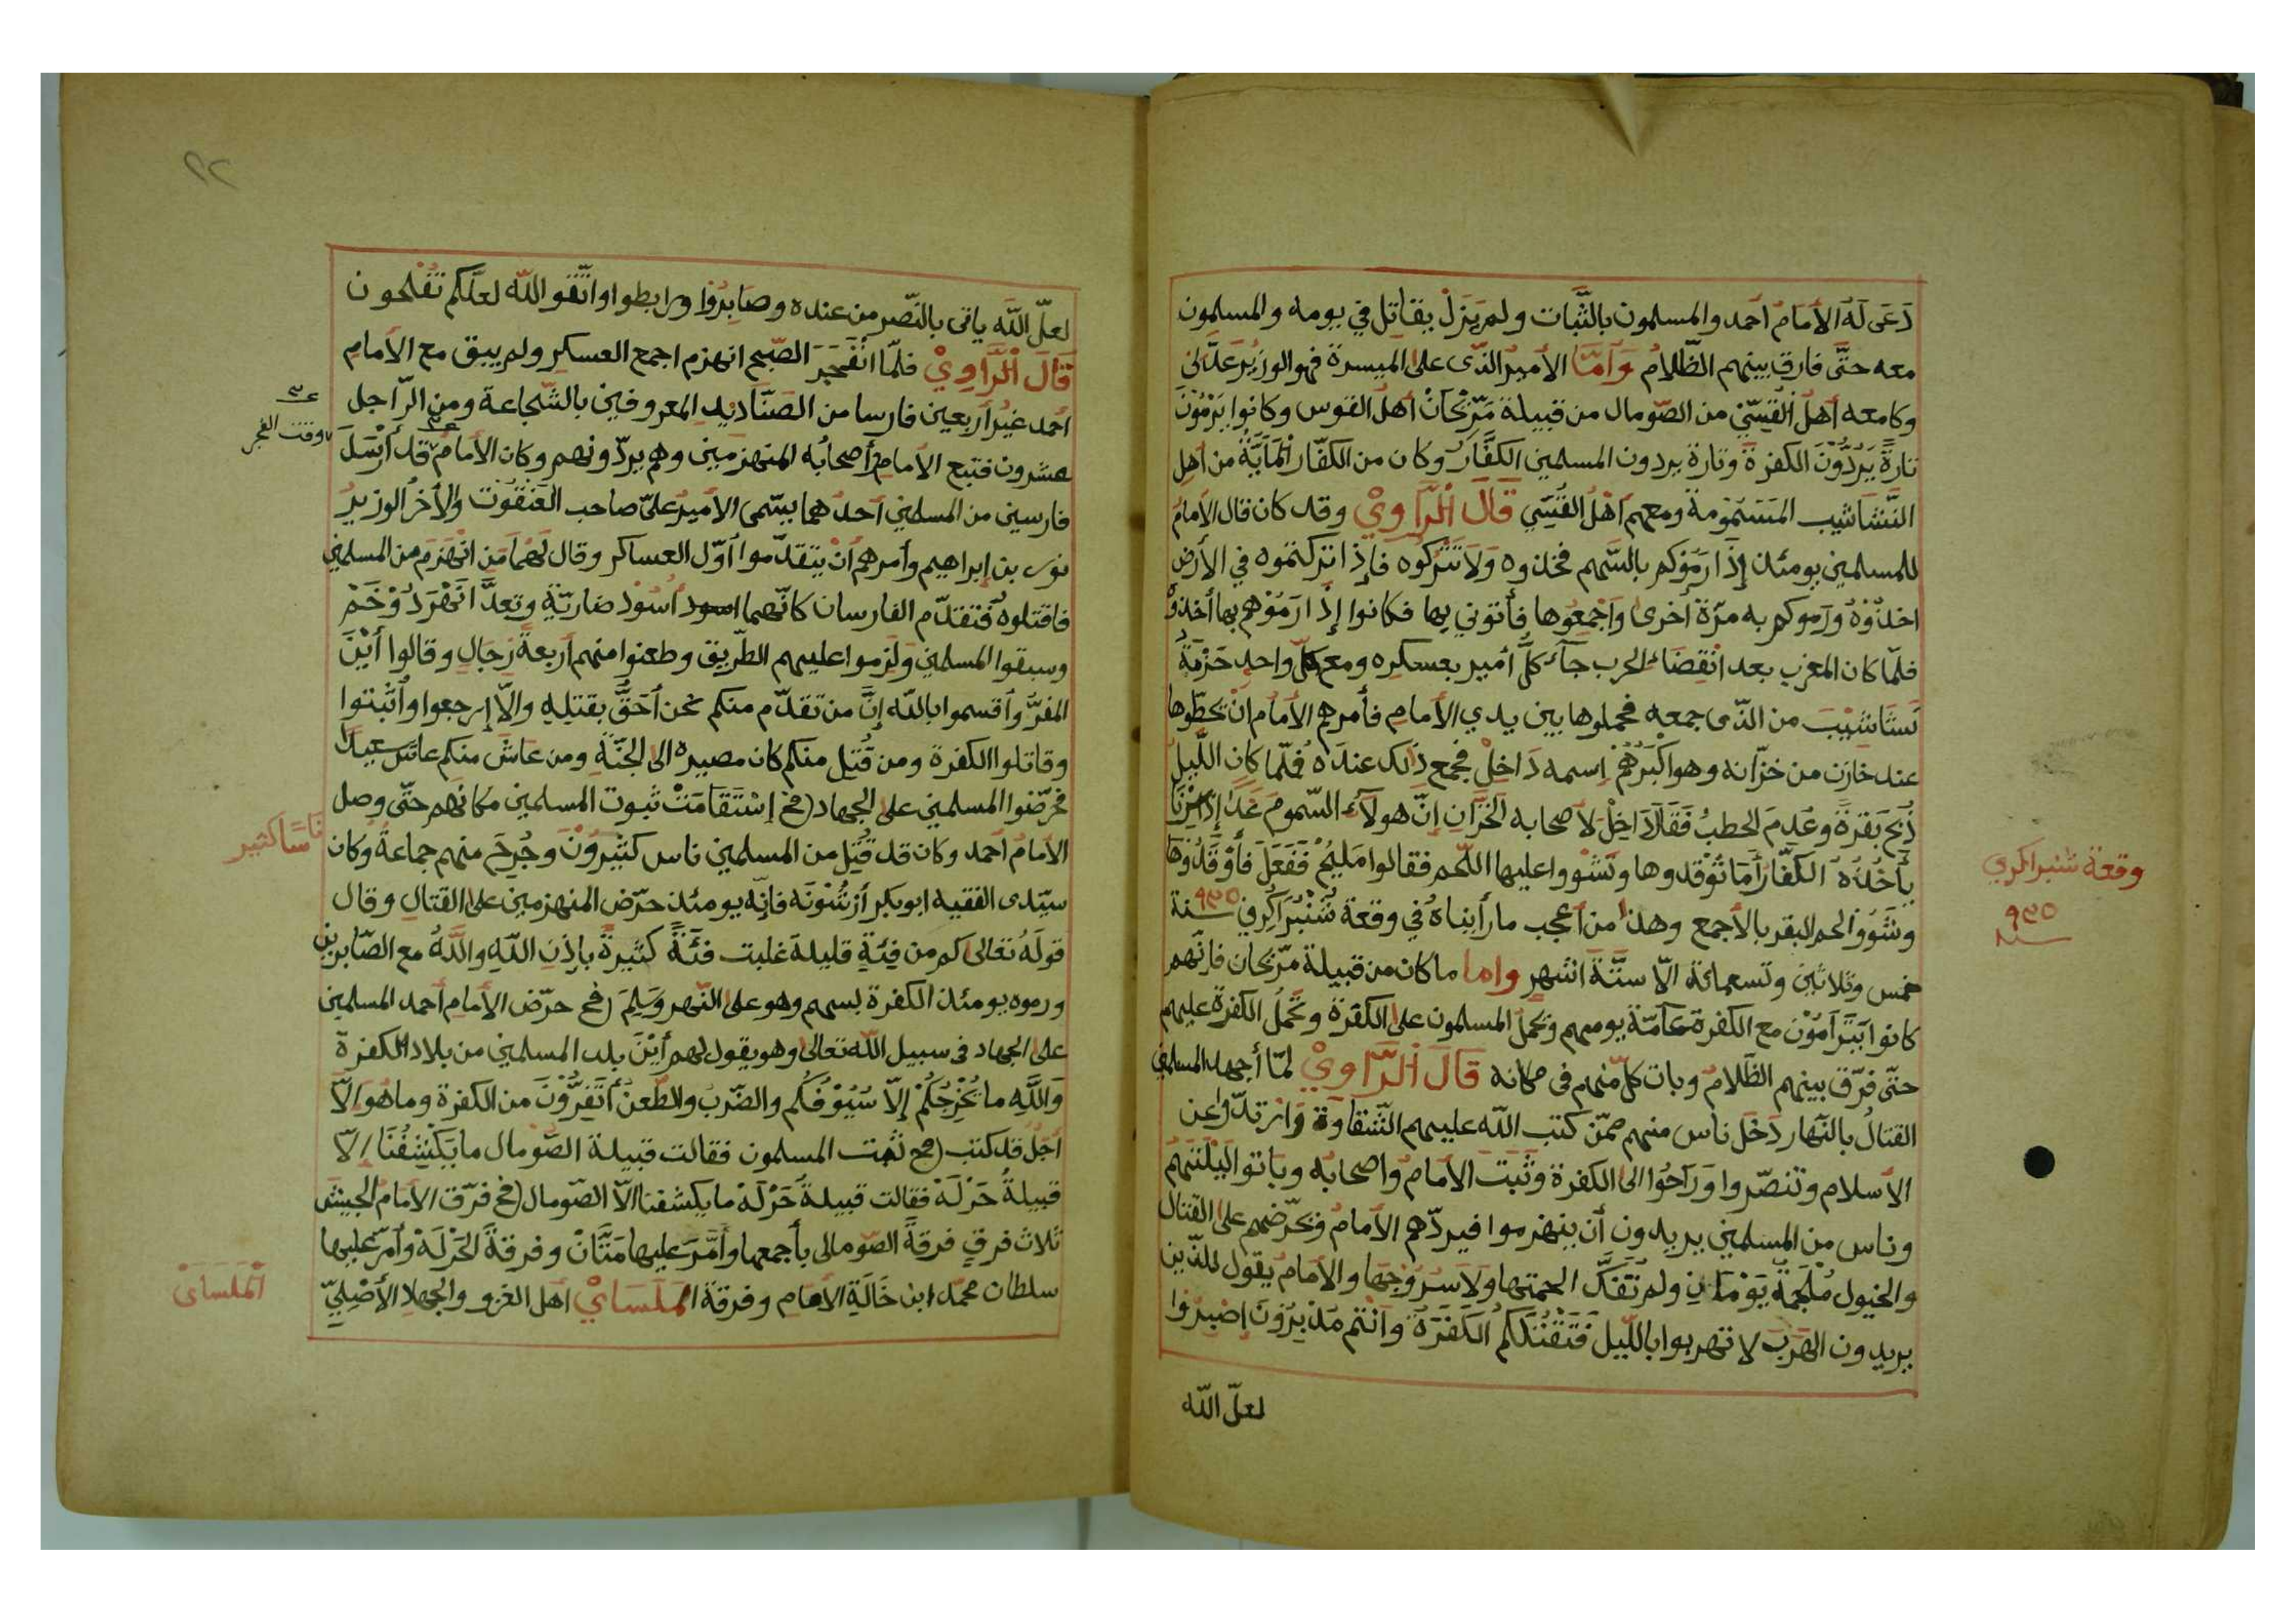 دَعَى لَهُ الأمَامُ احمد والمسلمون بالثَّبات ولم يَزَلْ يقاتل في يومه والمسلمون
معه حتَّى فارق بينهم الظَّلامُ وَأمَّا الأميرُ الذّى على الميسرة فهو الوزيرُ عَدْلى
وكا معه أهلُ القِسِّيّ من الصّومال من قبيلة مَرّيْحَانْ أهلُ القوس وكانوا يَرْمُوْنَ
تارةً يَرُدُّوْنَ الكفرةَ وتارة يردون المسلمين الكفَّارُ وكان من الكفّار المَايَةُ من أهل
النَّشاشيب المَسْمُوْمة ومعهم أهلُ القِسِّي قَالَ الرَّاوِيْ وقد كان قال الأمامُ
للمسلمين يومئذ إذَا رَمَوْكم بالسَّهم فخذوه وَلاَ تَتْرُكوه فإذا تركتموه في الأرض
اخذُوْهُ ورَموكم به مرّة أخرى وَاجْمَعُوها فأتوني بها فكانوا إذَا رَمَوْهم بها أخذوْ
فلمّا كان المغرب بعد انْقِضَاء الحرب جآء كلُّ أمير بعسكره ومع كلّ واحد حَزْمَةُ
نَشَاشَيْبَ من الذّى جمعه فحملوها بين يدي الأمامِ فأمرهم الأمام انْ يحطّوها
عند خازن من خزّانه وهو أكْبَرُهُمْ إسمه دَاخِلْ فجمع ذَلك عندَهُ فلمّا كان اللَّيلُ
ذُبِحَ بَقرةً وعُدِمَ الحطبُ فَقَالَ دَاخِلْ لأصحابه الخزّان إنّ هولآءِ السّمومَ غدًا إذا سِرْنَا
يأخُذُهُ الكفّارُ أمَا توْقدوها وتَشْووا عليها اللّحم فقالوا مَليْحٌ فَفَعَلَ فأوْقَدُوْهَا
وشَوَوْا لحم البقر بالأجمع وهذا من أعجب ما رأيناهُ في وقعة شُنْبُرَاكَرِ في ٩٣٥ سنة
خمس وثلاثين وتسعمائة الّا ستَّةَ اشهرٍ واما ما كان من قبيلة مرّيحان فانّهم
كانوا يَتَرَامَوْنَ مع الكفرة عَامّةَ يومهم وتحمل المسلمون على الكفرة وتَحْمُلُ الكفرةُ عليهم
حتّى فرّق بينهم الظَّلامُ وبات كلّ منهم فى مكانه قَالَ الرَّاوِيْ لمّا أجهد المسلمين
القتالُ بالنّهار دَخَلَ ناس منهم ممّن كتب الله عليهم الشّقاوة وَارْتدّوْا عن
الأسلام وتنصّروا وَرَاحُوا الى الكفرة وثَبَتَ الأمامُ واصحابُه وباتوا لَيْلَتَهُمْ
وناس من المسلمين يريدون أن ينهزموا فيردّهم الأمامُ ويحرّضهم على القتال
والخيول مُلْجَمَةٌ يَوْمَان ولم تُفَكَّ الجمتها ولا سُرُوْجها والأمامُ يقول للذين
يريدون الهَرَبَ لا تهربوا بالليل فَتَقْتُلَكُمُ الكَفَرَةُ وانتم مُدْبِرُوْنَ إصْبِرُوا
لعلّ الله
وقعة شنبراكري
٩٣٥
سنة
لعلّ اللّه ياتى بالنّصر من عنده وصَابِرُوْا ورابطوا واتّقو اللّه لعلّكم تُفْلحون
قَالَ الرَّاوِيْ فلمّا انْفَجَرَ الصّبح انهزم اجمع العسكر ولم يبق مع الأمام
احمد غيرُ أربعين فارسا من الصَّنَاديد المعروفين بالشّجاعة ومن الرّاجل
عشرون فتبع الأمامُ أصحابُه المنهزمين وهم يردّونهم وكان الأمامُ قد أرْسَلَ
فارسين من المسلمين أحدُهما يسّمى الأميرُ علىّ صاحب العَنقوْت والأخرُ الوزيرُ
نور بن إبراهيم وأمرهم أنْ يتقدّموا أوّل العساكر وقال لهُما مَن انْهَزمَ من المسلمين
فاقتلوهُ فتقدّم الفارسان كانّهما أسُوْد ضاريّة وتعدَّا نَهْرَ دُوْخَمْ
وسبقوا المسلمين ولَزموا عليهم الطّريق وطعنوا منهم أربعةَ رِجَالٍ وقالوا أيْنَ
المفرُّ وأقسموا بالله إنَّ من تقدّم منكم نحن أحَقُّ بقتلِهِ والاّ إرجعوا وأثْبتوا
وقاتلوا الكفرة ومن قُتِل منكم كان مصيره الى الجنّةِ ومن عاشَ منكم عاش سعيدا
فحرّضوا المسلمين على الجهاد (فح إسْتَقَامَتْ ثبوت المسلمين مكانَهم حتّى وصل
الأمامُ أحمد وكان قد قُتِل من المسلمين ناس كثيرُوْنَ وجُرِحَ منهم جماعةُ وكان
سيّدى الفقيه ابوبكر أرْشُوْنَه فانّه يومئذ حرّض المنهزمين على القتال وقال
قولَهُ تعالى كم من فِئةٍ قليلة غلبت فئَةً كثيرةً بإذن اللّهِ واللَّهُ مع الصّابرين
ورموه يومئذ الكفرة بسهم وهو على النّهر وَسَلِمَ (فح حرّض الأمام أحمد المسلمين
على الجهاد فى سبيل الله تعالى وهو يقول لهم أيْنَ بلد المسلمين من بلاد الكفرة
وَاللَّهِ ما يُخْرجُكُمْ إلّا سُيُوْفُكُم والضّربُ والطّعنُ أتَفِرُّوْنَ من الكفرة وما هُوَ الاّ
أجلُ قد كتب (فح ثبت المسلمون فقالت قبيلة الصّومال ما يَكْشِفُنَا إلّا
قبيلةُ حَرْلَهْ فقالت قبيلةُ حَرْلَهْ ما يكشفنا الّا الصّومال (فح فرّق الأمامُ الجيش
ثلاث فرقٍ فرقةَ الصّومالى بأجمعها وأمَّرَ عليها مَتَّانْ وفرقةَ الحَرْلَهْ وأمرّ عليها
سلطان محمّد ابن خَالَةِ الأمام وفرقة المَلَسَايْ أهل الغزو والجهاد الأصْلِيّ
وقت الفجر
ناسًا كثير
المَلَسَاىْ
٩٢